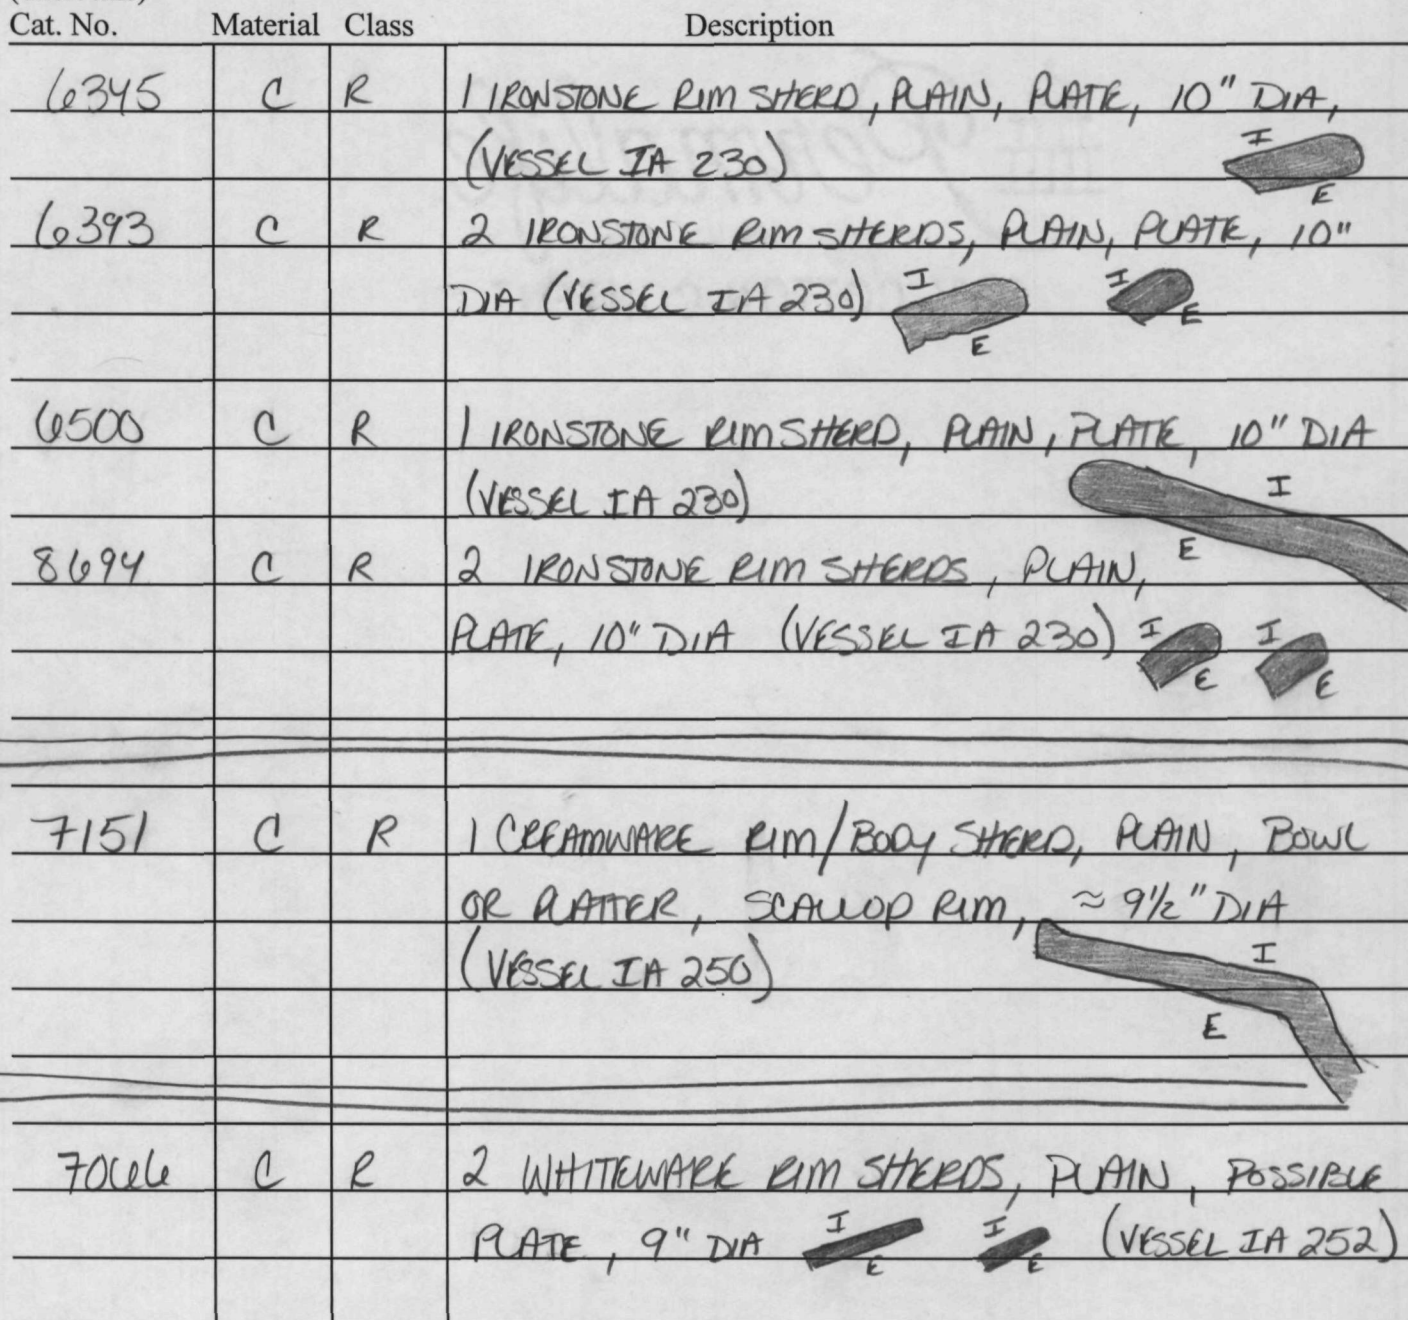 Cat. No. Material Class Description
6345 C R 1 IRONSTONE RIM SHERD, PLAIN, PLATE, 10" DIA,
(VESSEL IA 230) I
E
6393 C R 2 IRONSTONE RIM SHERDS, PLAIN, PLATE, 10"
DIA (VESSEL IA 230) I I
E E
6500 C R 1 IRONSTONE RIM SHERD, PLAIN, PLATE, 10" DIA
(VESSEL IA 230) I
E
8694 C R 2 IRONSTONE RIM SHERDS, PLAIN,
PLATE, 10" DIA (VESSEL IA 230) I I
E E
7151 C R 1 CREAMWARE RIM/BODY SHERD, PLAIN, BOWL
OR PLATTER, SCALLOP RIM, ≈ 9½" DIA
(VESSEL IA 250) I
E
7066 C R 2 WHITEWARE RIM SHERDS, PLAIN, POSSIBLE
PLATE, 9" DIA I I (VESSEL IA 252)
E E